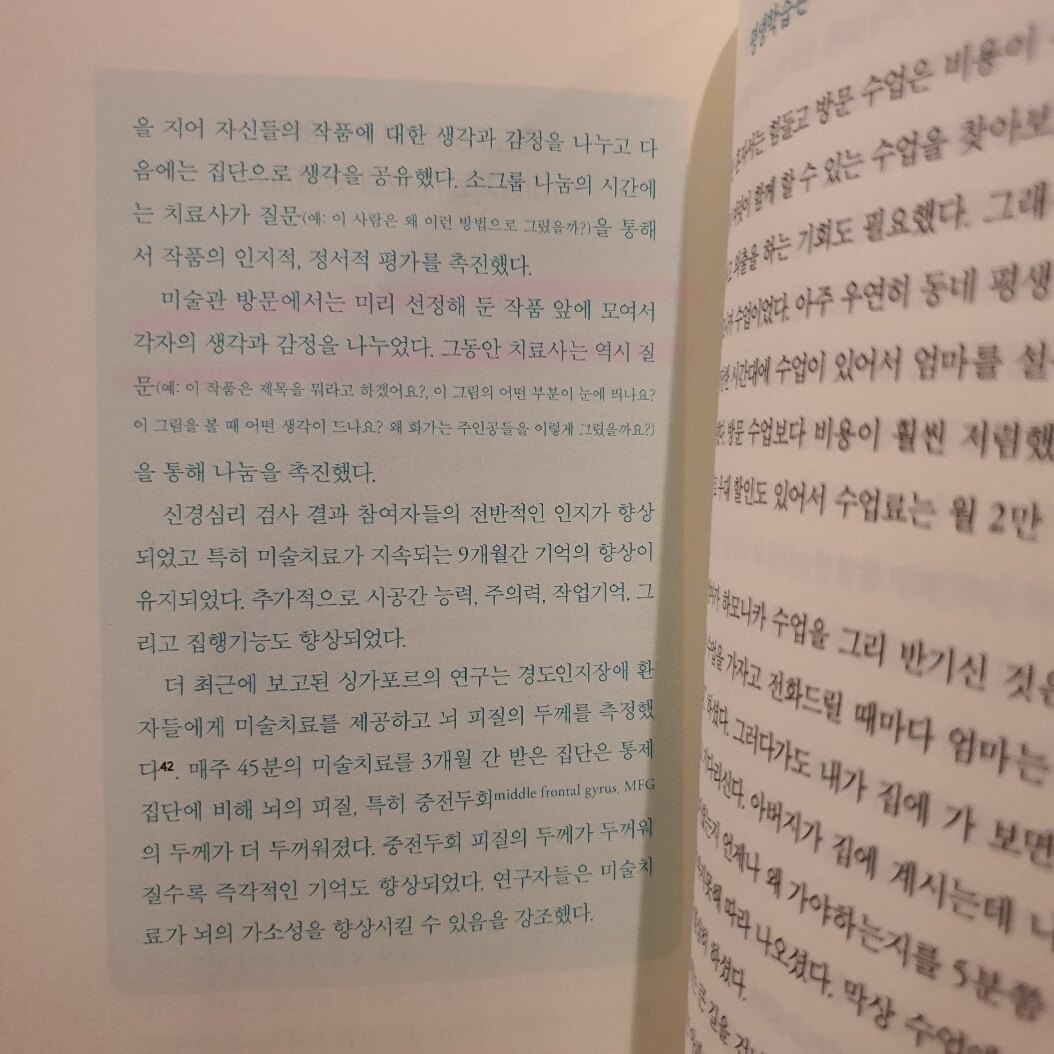 을 지어 자신들의 작품에 대한 생각과 감정을 나누고 다
음에는 집단으로 생각을 공유했다. 소그룹 나눔의 시간에
는 치료사가 질문(예: 이 사람은 왜 이런 방법으로 그렸을까?)을 통해
서 작품의 인지적, 정서적 평가를 촉진했다.
미술관 방문에서는 미리 선정해 둔 작품 앞에 모여서
각자의 생각과 감정을 나누었다. 그동안 치료사는 역시 질
문(예: 이 작품은 제목을 뭐라고 하겠어요?, 이 그림의 어떤 부분이 눈에 띄나요?
이 그림을 볼 때 어떤 생각이 드나요? 왜 화가는 주인공들을 이렇게 그렸을까요?)
을 통해 나눔을 촉진했다.
신경심리 검사 결과 참여자들의 전반적인 인지가 향상
되었고 특히 미술치료가 지속되는 9개월간 기억의 향상이
유지되었다. 추가적으로 시공간 능력, 주의력, 작업기억, 그
리고 집행기능도 향상되었다.
더 최근에 보고된 싱가포르의 연구는 경도인지장애 환
자들에게 미술치료를 제공하고 뇌 피질의 두께를 측정했
다42. 매주 45분의 미술치료를 3개월 간 받은 집단은 통제
집단에 비해 뇌의 피질, 특히 중전두회middle frontal gyrus, MFG
의 두께가 더 두꺼워졌다. 중전두회 피질의 두께가 두꺼워
질수록 즉각적인 기억도 향상되었다. 연구자들은 미술치
료가 뇌의 가소성을 향상시킬 수 있음을 강조했다.
평생학습관
힘들고 방문 수업은 비용이
함께 할 수 있는 수업을 찾아보
외출을 하는 기회도 필요했다. 그래
수업이었다. 아주 우연히 동네 평생
시간대에 수업이 있어서 엄마를 설
방문 수업보다 비용이 훨씬 저렴했
우대 할인도 있어서 수업료는 월 2만
하모니카 수업을 그리 반기신 것은
수업을 가자고 전화드릴 때마다 엄마는
하셨다. 그러다가도 내가 집에 가 보면
기다리신다. 아버지가 집에 계시는데
언제나 왜 가야하는지를 5분쯤
따라 나오셨다. 막상 수업에
하셨다.
큰 길을